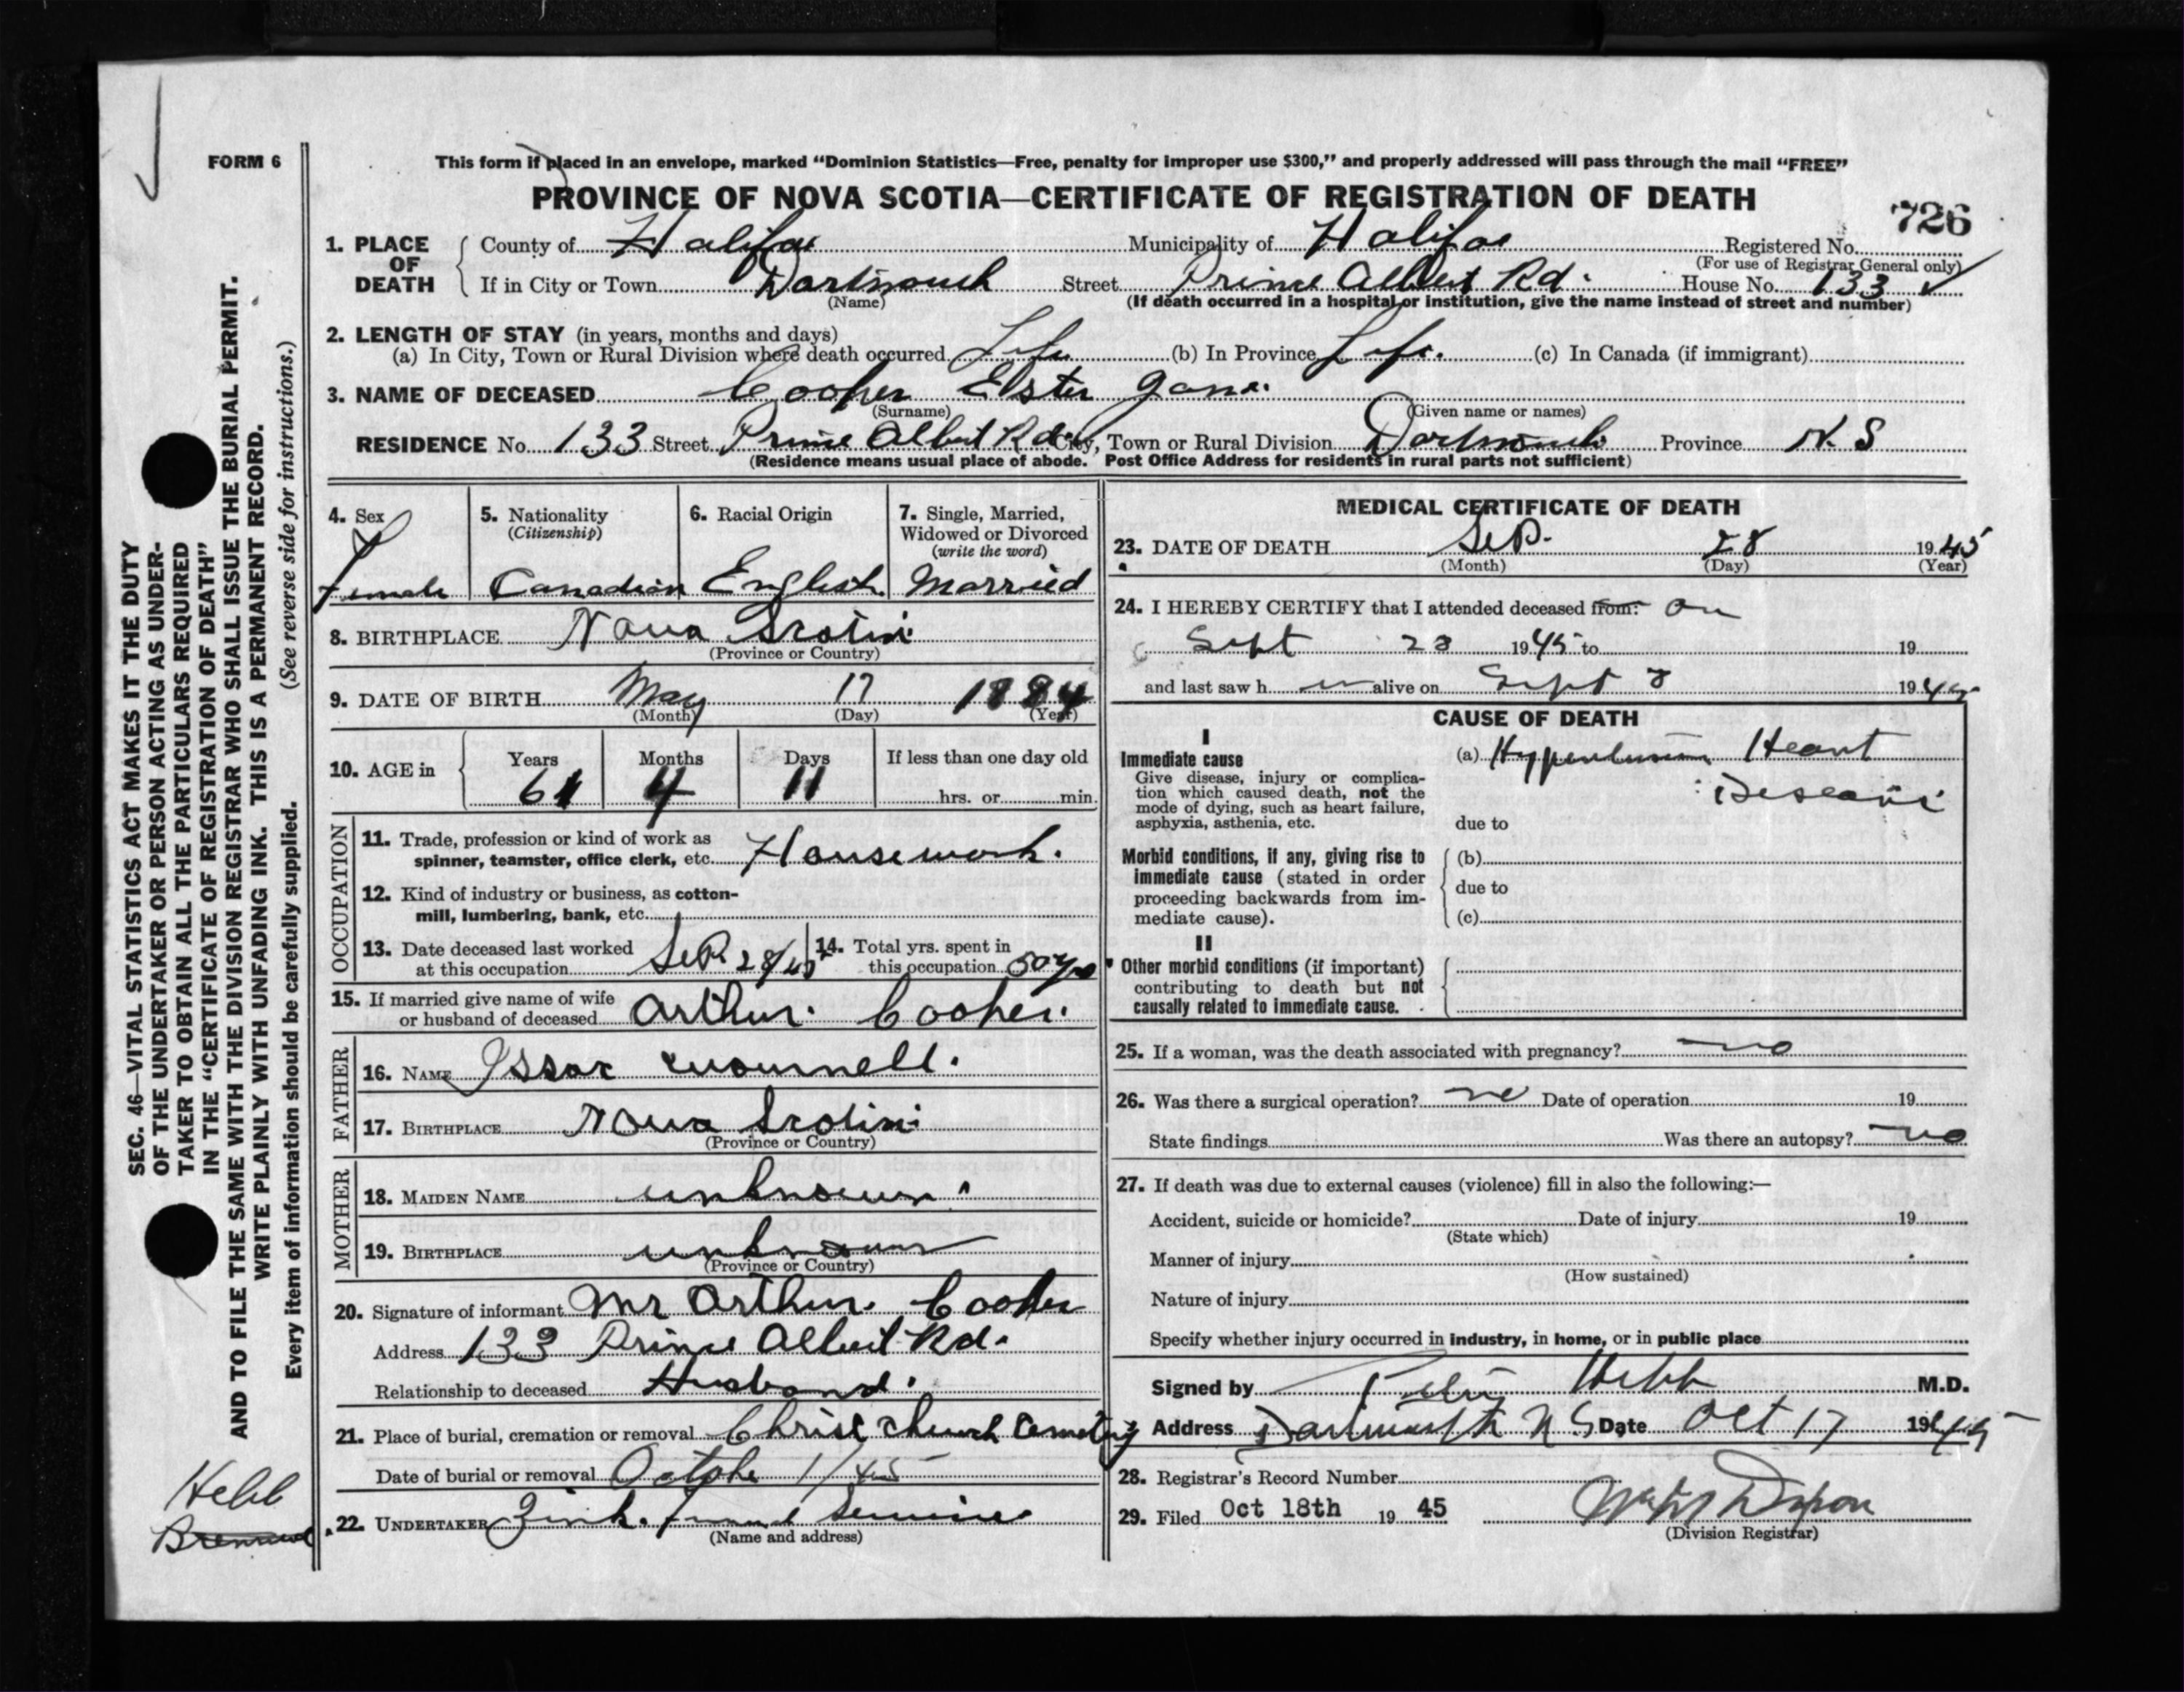 FORM 6
This form if placed in an envelope, marked “Dominion Statistics—Free, penalty for improper use $300,” and properly addressed will pass through the mail “FREE”
PROVINCE OF NOVA SCOTIA—CERTIFICATE OF REGISTRATION OF DEATH
726
1. PLACE OF DEATH County of Halifax Municipality of Halifax Registered No.
(For use of Registrar General only)
If in City or Town Dartmouth Street Prince Albert Rd. House No. 133
(Name) (If death occurred in a hospital or institution, give the name instead of street and number)
2. LENGTH OF STAY (in years, months and days)
(a) In City, Town or Rural Division where death occurred Life (b) In Province Life. (c) In Canada (if immigrant)
3. NAME OF DECEASED Cooper Elster Jane.
(Surname) (Given name or names)
RESIDENCE No. 133 Street Prince Albert Rd City, Town or Rural Division Dartmouth Province N. S
(Residence means usual place of abode. Post Office Address for residents in rural parts not sufficient)
4. Sex
Female
5. Nationality
(Citizenship)
Canadian
6. Racial Origin
English
7. Single, Married,
Widowed or Divorced
(write the word)
Married
8. BIRTHPLACE Nova Scotia
(Province or Country)
9. DATE OF BIRTH May 17 1884
(Month) (Day) (Year)
10. AGE in Years Months Days If less than one day old
61 4 11 hrs. or min.
OCCUPATION
11. Trade, profession or kind of work as
spinner, teamster, office clerk, etc. Housework.
12. Kind of industry or business, as cotton-
mill, lumbering, bank, etc.
13. Date deceased last worked
at this occupation Sep. 28/45
14. Total yrs. spent in
this occupation 50 yrs
15. If married give name of wife
or husband of deceased Arthur. Cooper.
FATHER
16. NAME Issac
17. BIRTHPLACE Nova Scotia
(Province or Country)
MOTHER
18. MAIDEN NAME unknown
19. BIRTHPLACE unknown
(Province or Country)
20. Signature of informant Mr Arthur. Cooper
Address 133 Prince Albert Rd.
Relationship to deceased Husband.
21. Place of burial, cremation or removal Christ Church Cemetery
Date of burial or removal October 1/45
22. UNDERTAKER Zink. Funeral Service
(Name and address)
MEDICAL CERTIFICATE OF DEATH
23. DATE OF DEATH Sep. 28 1945
(Month) (Day) (Year)
24. I HEREBY CERTIFY that I attended deceased from: on
Sept 28 1945 to 19
and last saw h alive on Sept 1945
CAUSE OF DEATH
I
Immediate cause
Give disease, injury or complica-
tion which caused death, not the
mode of dying, such as heart failure,
asphyxia, asthenia, etc.
(a) Hypertension Heart
Disease
due to
Morbid conditions, if any, giving rise to
immediate cause (stated in order
proceeding backwards from im-
mediate cause).
(b)
due to
(c)
II
Other morbid conditions (if important)
contributing to death but not
causally related to immediate cause.
25. If a woman, was the death associated with pregnancy? no
26. Was there a surgical operation? no Date of operation 19
State findings Was there an autopsy? no
27. If death was due to external causes (violence) fill in also the following:—
Accident, suicide or homicide? Date of injury 19
(State which)
Manner of injury
(How sustained)
Nature of injury
Specify whether injury occurred in industry, in home, or in public place
Signed by Hebb M.D.
Address Dartmouth N.S Date Oct 17 1945
28. Registrar's Record Number
29. Filed Oct 18th 19 45
(Division Registrar)
SEC. 46—VITAL STATISTICS ACT MAKES IT THE DUTY
OF THE UNDERTAKER OR PERSON ACTING AS UNDER-
TAKER TO OBTAIN ALL THE PARTICULARS REQUIRED
IN THE “CERTIFICATE OF REGISTRATION OF DEATH”
AND TO FILE THE SAME WITH THE DIVISION REGISTRAR WHO SHALL ISSUE THE BURIAL PERMIT.
WRITE PLAINLY WITH UNFADING INK. THIS IS A PERMANENT RECORD.
Every item of information should be carefully supplied. (See reverse side for instructions.)
Hebb